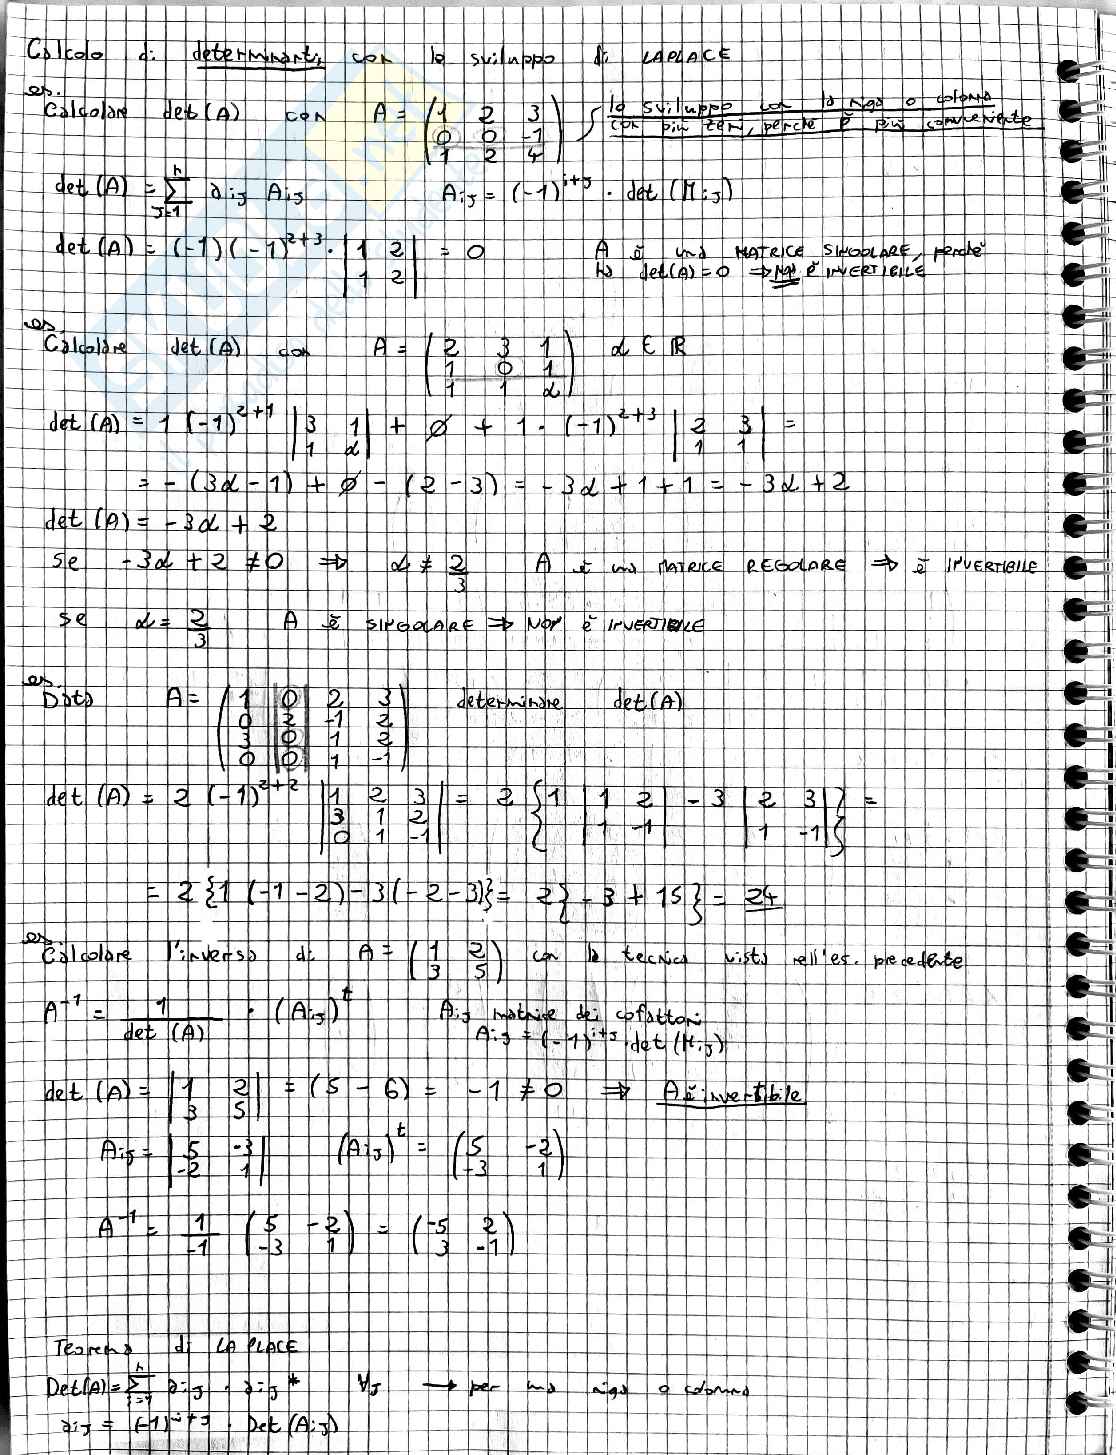 Calcolo di determinanti con lo sviluppo di LAPLACE
es.
Calcolare det(A) con A = (1 2 3
0 0 -1
1 2 4)
lo sviluppo con la riga o colonna
con più zeri, perché è più conveniente
det(A) = n∑j=1 aij Aij Aij = (-1)^i+j · det(Mij)
det(A) = (-1)(-1)^2+3 · |1 2
1 2| = 0
A è una MATRICE SINGOLARE, perché
la det(A)=0 ⇒ NON È INVERTIBILE
es.
Calcolare det(A) con A = (2 3 1
1 0 1
1 1 α) α ∈ ℝ
det(A) = 1 (-1)^2+1 |3 1
1 α| + ∅ + 1 · (-1)^2+3 |2 3
1 1| =
= -(3α-1) + ∅ - (2-3) = -3α+1+1 = -3α+2
det(A) = -3α+2
se -3α+2 ≠0 ⇒ α ≠ 2/3 A è una MATRICE REGOLARE ⇒ È INVERTIBILE
se α = 2/3 A è SINGOLARE ⇒ NON È INVERTIBILE
es.
Data A = (1 0 2 3
0 2 -1 2
3 0 1 2
0 0 1 -1) determinare det(A)
det(A) = 2 (-1)^2+2 |1 2 3
3 1 2
0 1 -1| = 2 {1 |1 2
1 -1| - 3 |2 3
1 -1|} =
= 2{1(-1-2)-3(-2-3)} = 2{-3+15} = 24
es.
Calcolare l'inversa di A = (1 2
3 5) con la tecnica vista nell'es. precedente
A^-1 = 1/det(A) · (Aij)^t Aij matrice dei cofattori
Aij = (-1)^i+j · det(Mij)
det(A) = |1 2
3 5| = (5 - 6) = -1 ≠ 0 ⇒ A è invertibile
Aij = |5 -3
-2 1| (Aij)^t = (5 -2
-3 1)
A^-1 = 1/-1 (5 -2
-3 1) = (-5 2
3 -1)
Teorema di LAPLACE
Det(A) = n∑i=1 aij · aij* ∀j → per una riga o colonna
aij = (-1)^i+j · Det(Aij)